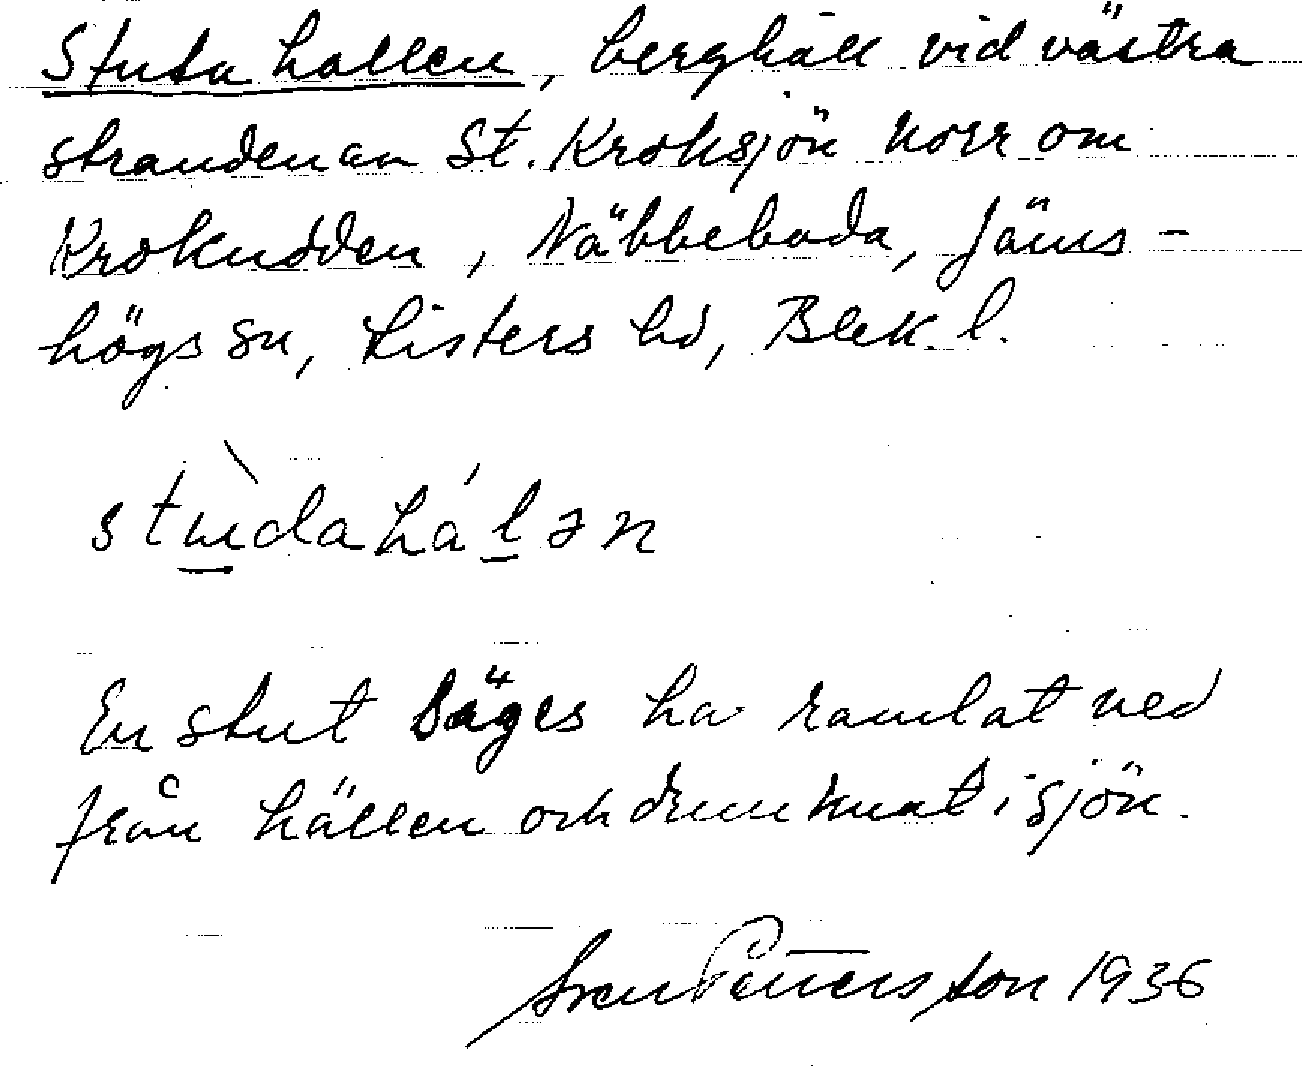 Stuta hallen, berghäll vid västra
stranden av St. Kroksjön norr om
Krokudden, Näbbeboda, Jäms-
högs sn, Listers hd, Blek. l.
stùdahálən
En stut säges ha ramlat ned
från hällen och drunknat i sjön.
Sven Pettersson 1936